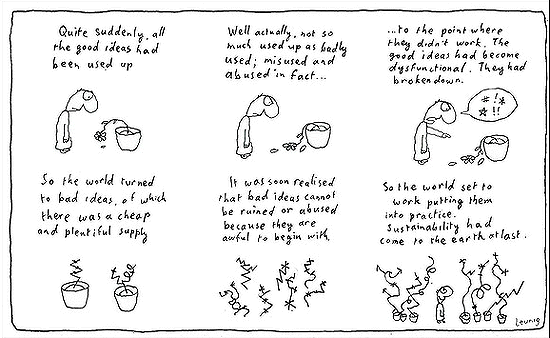 Quite suddenly, all
the good ideas had
been used up
Well actually, not so
much used up as badly
used; misused and
abused in fact...
...to the point where
they didn't work. The
good ideas had become
dysfunctional. They had
broken down.
#!*
*!!
So the world turned
to bad ideas, of which
there was a cheap
and plentiful supply
It was soon realised
that bad ideas cannot
be ruined or abused
because they are
awful to begin with.
So the world set to
work putting them
into practice.
Sustainability had
come to the earth at last.
Leunig